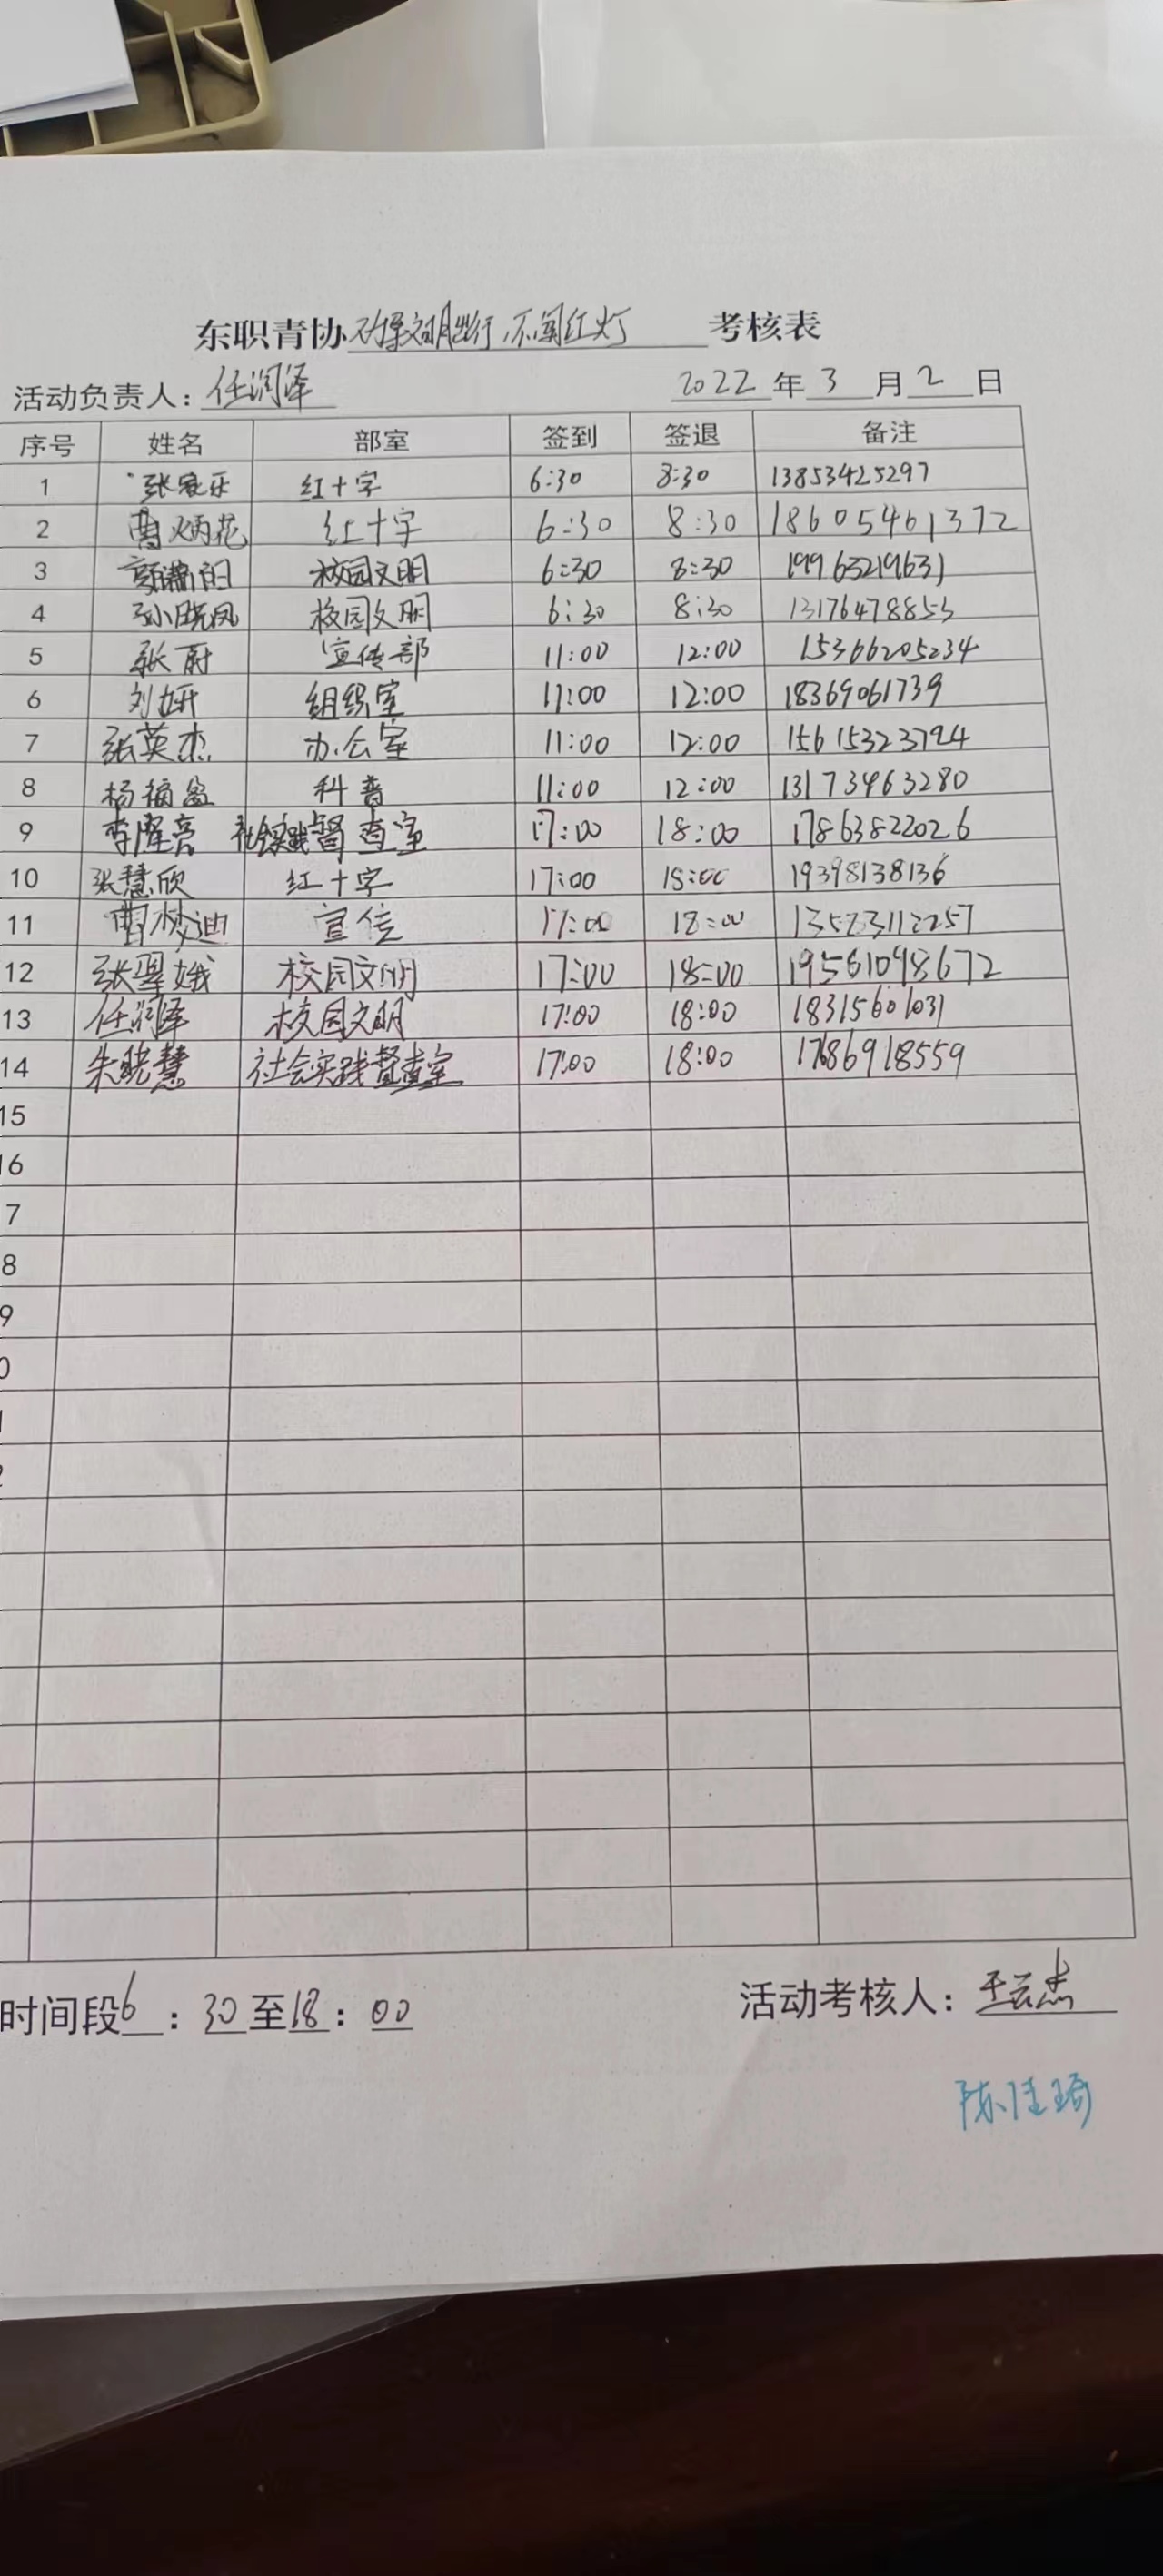 东职青协 文明出行,不闯红灯 考核表
活动负责人: 任润泽 2022 年 3 月 2 日
序号 姓名 部室 签到 签退 备注
1 张家乐 红十字 6:30 8:30 13853425297
2 曹炳花 红十字 6:30 8:30 18605461372
3 颜潇阳 校园文明 6:30 8:30 19963219631
4 孙晓凤 校园文明 6:30 8:30 13176478853
5 张蔚 宣传部 11:00 12:00 15366205234
6 刘妍 组织室 11:00 12:00 18369061739
7 张英杰 办公室 11:00 12:00 15615323794
8 杨福盈 科普 11:00 12:00 13173463280
9 李隆亮 社会实践督查室 17:00 18:00 17863822026
10 张慧欣 红十字 17:00 18:00 19398138136
11 曹梦迪 宣传 17:00 18:00 13523112257
12 张翠娥 校园文明 17:00 18:00 19561098672
13 任润泽 校园文明 17:00 18:00 18315601031
14 朱晓慧 社会实践督查室 17:00 18:00 17686918559
15
16
7
8
9
0
1
2
时间段6:30至18:00 活动考核人: 王云杰
陈佳琦